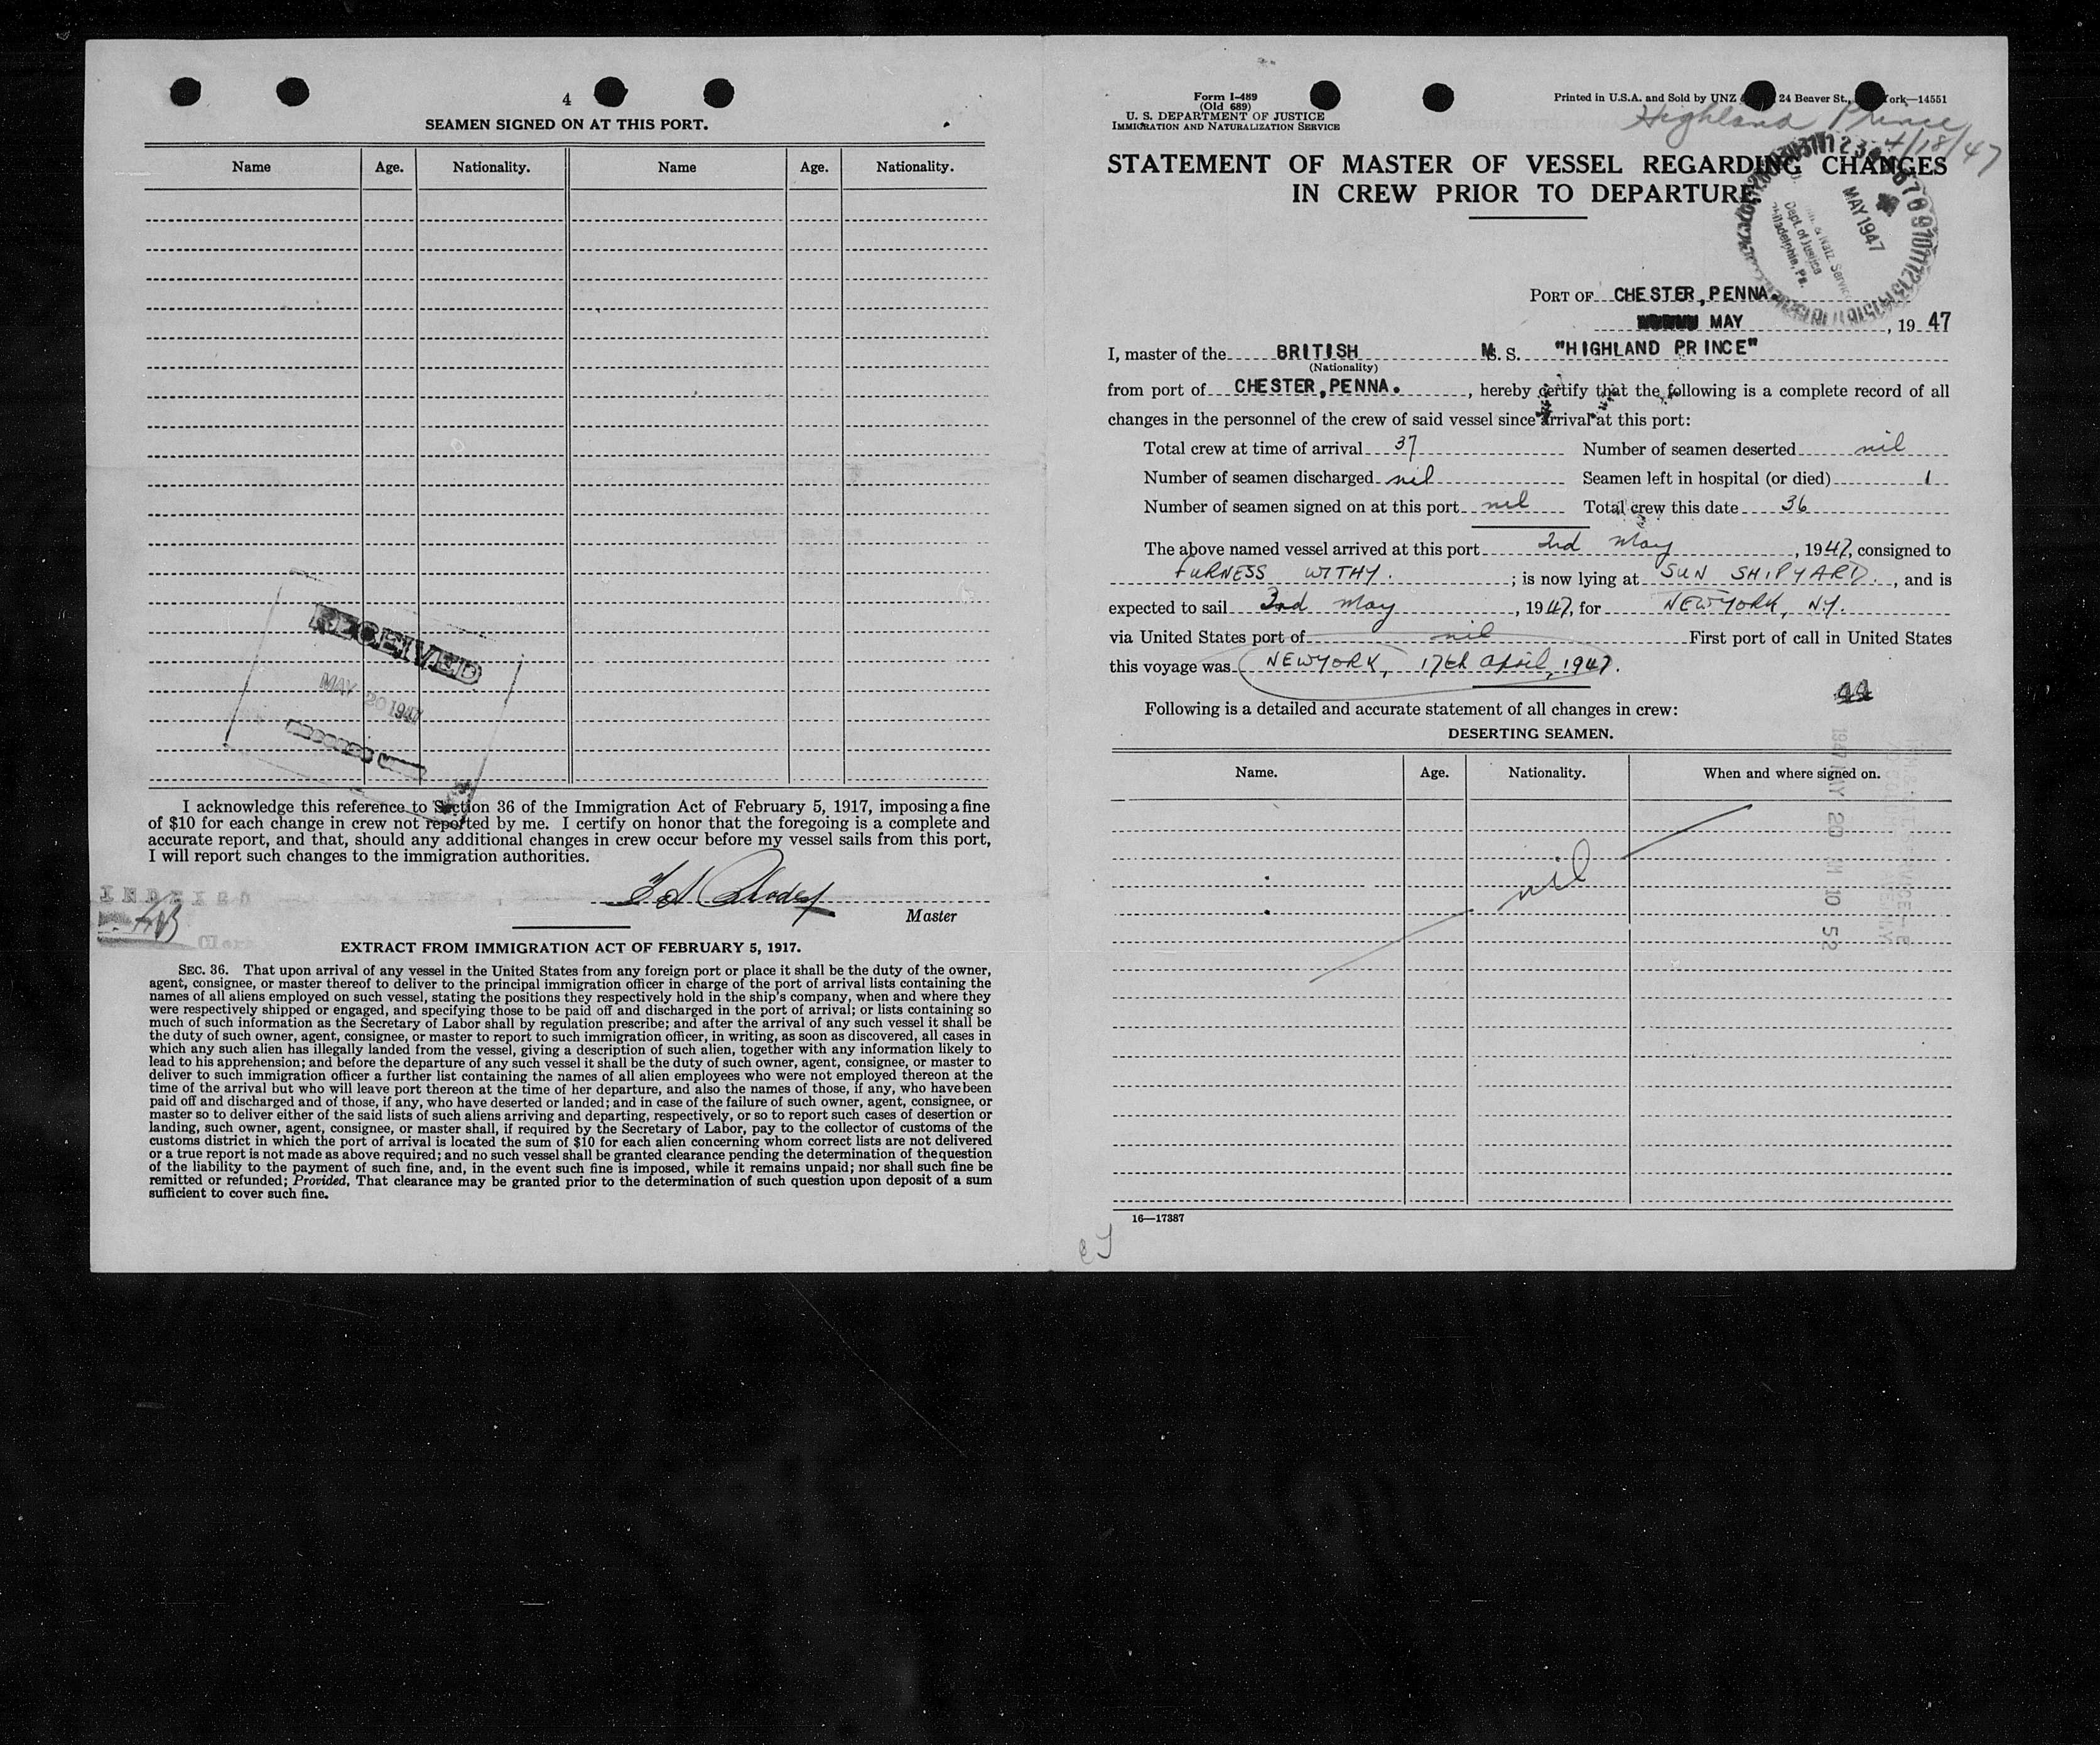 4
SEAMEN SIGNED ON AT THIS PORT.
Name Age. Nationality. Name Age. Nationality.
RECEIVED
MAY 20 1947
I acknowledge this reference to Section 36 of the Immigration Act of February 5, 1917, imposing a fine
of $10 for each change in crew not reported by me. I certify on honor that the foregoing is a complete and
accurate report, and that, should any additional changes in crew occur before my vessel sails from this port,
I will report such changes to the immigration authorities.
Master
EXTRACT FROM IMMIGRATION ACT OF FEBRUARY 5, 1917.
SEC. 36. That upon arrival of any vessel in the United States from any foreign port or place it shall be the duty of the owner,
agent, consignee, or master thereof to deliver to the principal immigration officer in charge of the port of arrival lists containing the
names of all aliens employed on such vessel, stating the positions they respectively hold in the ship's company, when and where they
were respectively shipped or engaged, and specifying those to be paid off and discharged in the port of arrival; or lists containing so
much of such information as the Secretary of Labor shall by regulation prescribe; and after the arrival of any such vessel it shall be
the duty of such owner, agent, consignee, or master to report to such immigration officer, in writing, as soon as discovered, all cases in
which any such alien has illegally landed from the vessel, giving a description of such alien, together with any information likely to
lead to his apprehension; and before the departure of any such vessel it shall be the duty of such owner, agent, consignee, or master to
deliver to such immigration officer a further list containing the names of all alien employees who were not employed thereon at the
time of the arrival but who will leave port thereon at the time of her departure, and also the names of those, if any, who have been
paid off and discharged and of those, if any, who have deserted or landed; and in case of the failure of such owner, agent, consignee, or
master so to deliver either of the said lists of such aliens arriving and departing, respectively, or so to report such cases of desertion or
landing, such owner, agent, consignee, or master shall, if required by the Secretary of Labor, pay to the collector of customs of the
customs district in which the port of arrival is located the sum of $10 for each alien concerning whom correct lists are not delivered
or a true report is not made as above required; and no such vessel shall be granted clearance pending the determination of the question
of the liability to the payment of such fine, and, in the event such fine is imposed, while it remains unpaid; nor shall such fine be
remitted or refunded; Provided, That clearance may be granted prior to the determination of such question upon deposit of a sum
sufficient to cover such fine.
Form I-489
(Old 689)
U. S. DEPARTMENT OF JUSTICE
IMMIGRATION AND NATURALIZATION SERVICE
Printed in U.S.A. and Sold by UNZ 24 Beaver St., ork—14551
Highland Prince
4/18/47
STATEMENT OF MASTER OF VESSEL REGARDING CHANGES
IN CREW PRIOR TO DEPARTURE.
MAY 1947
& Natz. Servic
Dept. of Justice
Philadelphia, Pa.
PORT OF CHESTER, PENNA.
MAY , 19 47
I, master of the BRITISH M. S. "HIGHLAND PRINCE"
(Nationality)
from port of CHESTER, PENNA. , hereby certify that the following is a complete record of all
changes in the personnel of the crew of said vessel since arrival at this port:
Total crew at time of arrival 37 Number of seamen deserted nil
Number of seamen discharged nil Seamen left in hospital (or died) 1
Number of seamen signed on at this port nil Total crew this date 36
The above named vessel arrived at this port 2nd May , 1947, consigned to
FURNESS WITHY. ; is now lying at SUN SHIPYARD. , and is
expected to sail May , 1947, for NEW YORK, N.Y.
via United States port of nil First port of call in United States
this voyage was NEW YORK, 17th April, 1947.
44
Following is a detailed and accurate statement of all changes in crew:
DESERTING SEAMEN.
Name. Age. Nationality. When and where signed on.
nil
1947 MAY 20 10 52
16—17387